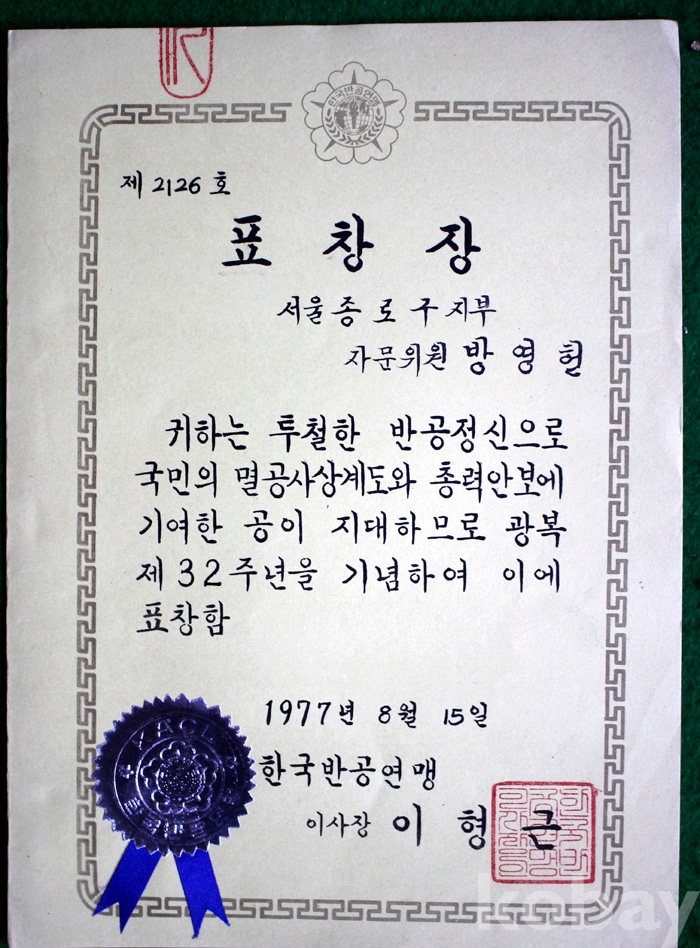 한국반공연맹
제 2126 호
표 창 장
서울 종 로 구 지부
자문위원 방 영 헌
귀하는 투철한 반공정신으로
국민의 멸공사상계도와 총력안보에
기여한 공이 지대하므로 광복
제 32 주년을 기념하여 이에
표창함
1977년 8월 15일
한국반공연맹
이사장 이 형 근
KACL
kobay